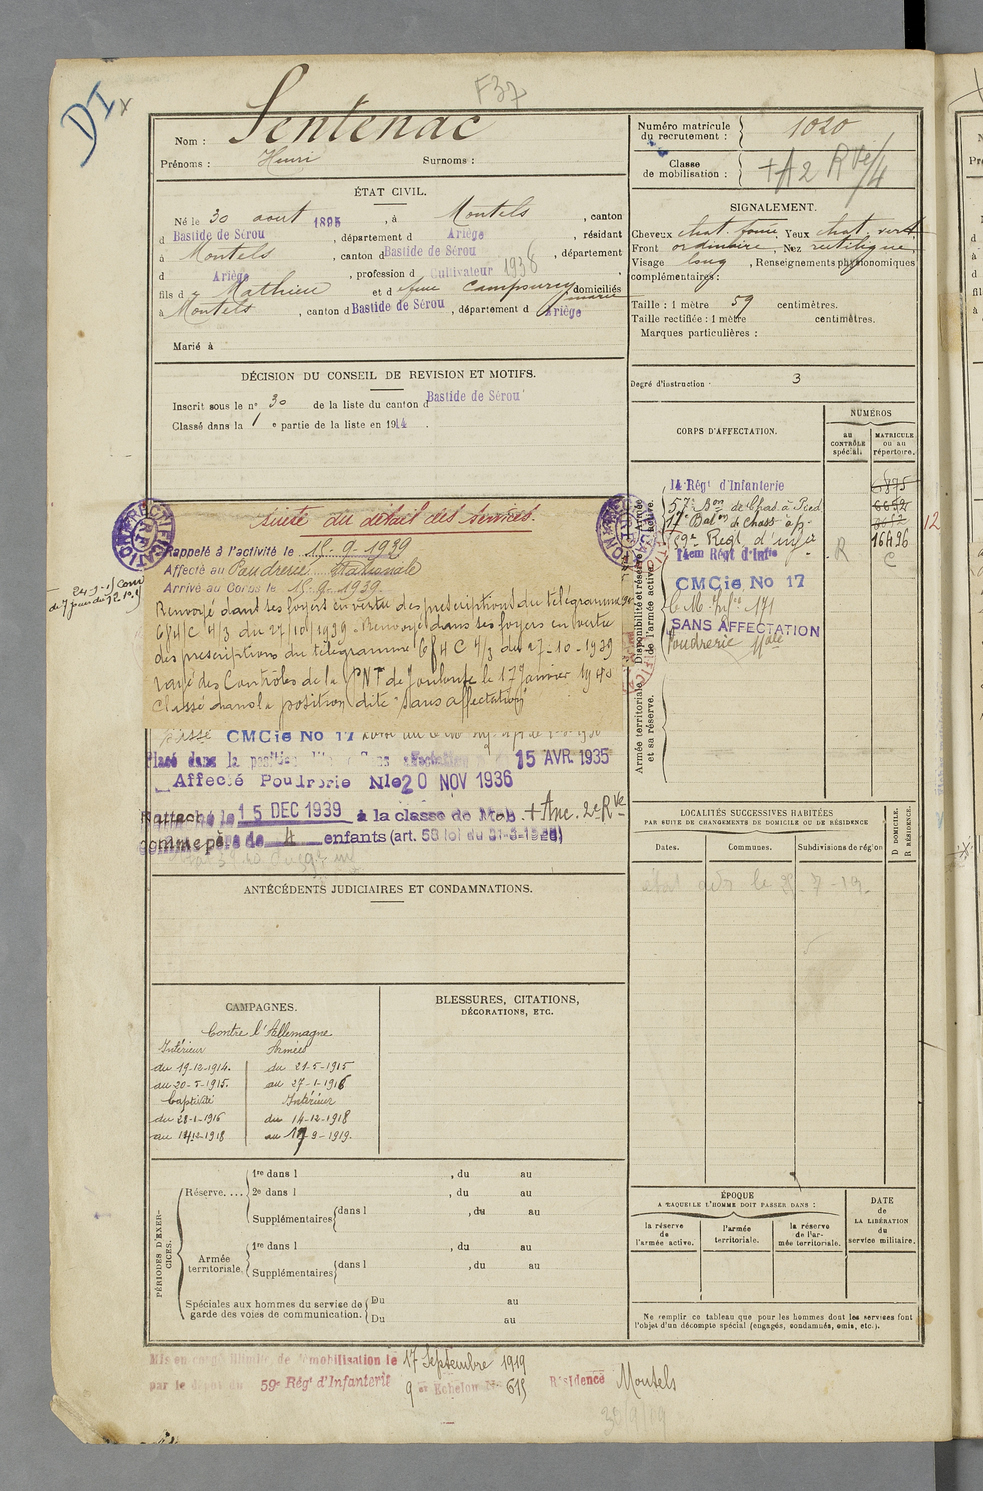 DI
F37
Nom : Sentenac
Prénoms : Henri Surnoms :
ÉTAT CIVIL.
Né le 30 aout 1895, à Montels, canton
d Bastide de Sérou, département d Ariège, résidant
à Montels, canton d Bastide de Sérou, département
d Ariège, profession d Cultivateur 1938
fils d Mathieu et d domiciliés
à Montels, canton d Bastide de Sérou, département d Ariège
Marié à
DÉCISION DU CONSEIL DE REVISION ET MOTIFS.
Inscrit sous le n° 30 de la liste du canton d Bastide de Sérou
Classé dans la 1e partie de la liste en 1914.
RECTIFICATION
suite du détail des services.
Rappelé à l'activité le 15-9-1939
Affecté au Poudrerie Nationale
Arrivé au Corps le 15-9-1939
Renvoyé dans ses foyers en vertu des prescriptions du télégramme
684 C 4/3 du 27/10/1939. Renvoyé dans ses foyers en vertu
des prescriptions du télégramme 684 C 4/3 du 27-10-1939
rayé des Contrôles de la PNle de Toulouse le 17 Janvier 1940
Classé dans la position dite "sans affectation"
passé CMCie No 17
Placé dans la position dite Sans affectation 15 AVR. 1935
Affecté Poudrerie Nle 20 NOV 1936
Rattaché le 15 DEC 1939 à la classe de Mob + Anc. 2e Rve
comme père de 4 enfants (art. 58 loi du 31-3-1928)
ANTÉCÉDENTS JUDICIAIRES ET CONDAMNATIONS.
CAMPAGNES.
Contre l'Allemagne
Intérieur Armées
du 19-12-1914. du 21-5-1915
au 20-5-1915. au 27-1-1916
Captivité Intérieur
du 28-1-1916 du 14-12-1918
au 13-12-1918 au 17-9-1919.
BLESSURES, CITATIONS,
DÉCORATIONS, ETC.
PÉRIODES D'EXERCICES.
Réserve....
1re dans l , du au
2e dans l , du au
Supplémentaires dans l , du au
Armée territoriale.
1re dans l , du au
Supplémentaires dans l , du au
Spéciales aux hommes du service de garde des voies de communication.
Du au
Du au
Mis en congé illimité de démobilisation le 17 Septembre 1919
par le dépôt du 59e Régt d'Infanterie 9e Echelon No 615 Résidence Montels
Numéro matricule du recrutement : 1020
Classe de mobilisation : +A2 RVe/4
SIGNALEMENT.
Cheveux chat. foncé, Yeux chat. vert
Front ordinaire, Nez rectiligne
Visage long, Renseignements physionomiques
complémentaires :
Taille : 1 mètre 59 centimètres.
Taille rectifiée : 1 mètre centimètres.
Marques particulières :
Degré d'instruction : 3
CORPS D'AFFECTATION.
NUMÉROS
au CONTRÔLE spécial.
MATRICULE ou au répertoire.
Disponibilité et réserve de l'armée active.
Armée active.
14 Régt d'Infanterie
57e Bon de Chas. à Pied
17e Baton de Chass. à p.
59e Regt d'infie 16496
14em Régt d'Infie R C
12
CMCie No 17
SANS AFFECTATION
Poudrerie Nale
Armée territoriale et sa réserve.
LOCALITÉS SUCCESSIVES HABITÉES
PAR SUITE DE CHANGEMENTS DE DOMICILE OU DE RÉSIDENCE
D DOMICILE.
R RÉSIDENCE.
Dates. Communes. Subdivisions de région
ÉPOQUE
A LAQUELLE L'HOMME DOIT PASSER DANS :
la réserve de l'armée active.
l'armée territoriale.
la réserve de l'armée territoriale.
DATE de LA LIBÉRATION du service militaire.
Ne remplir ce tableau que pour les hommes dont les services font
l'objet d'un décompte spécial (engagés, condamnés, omis, etc.).